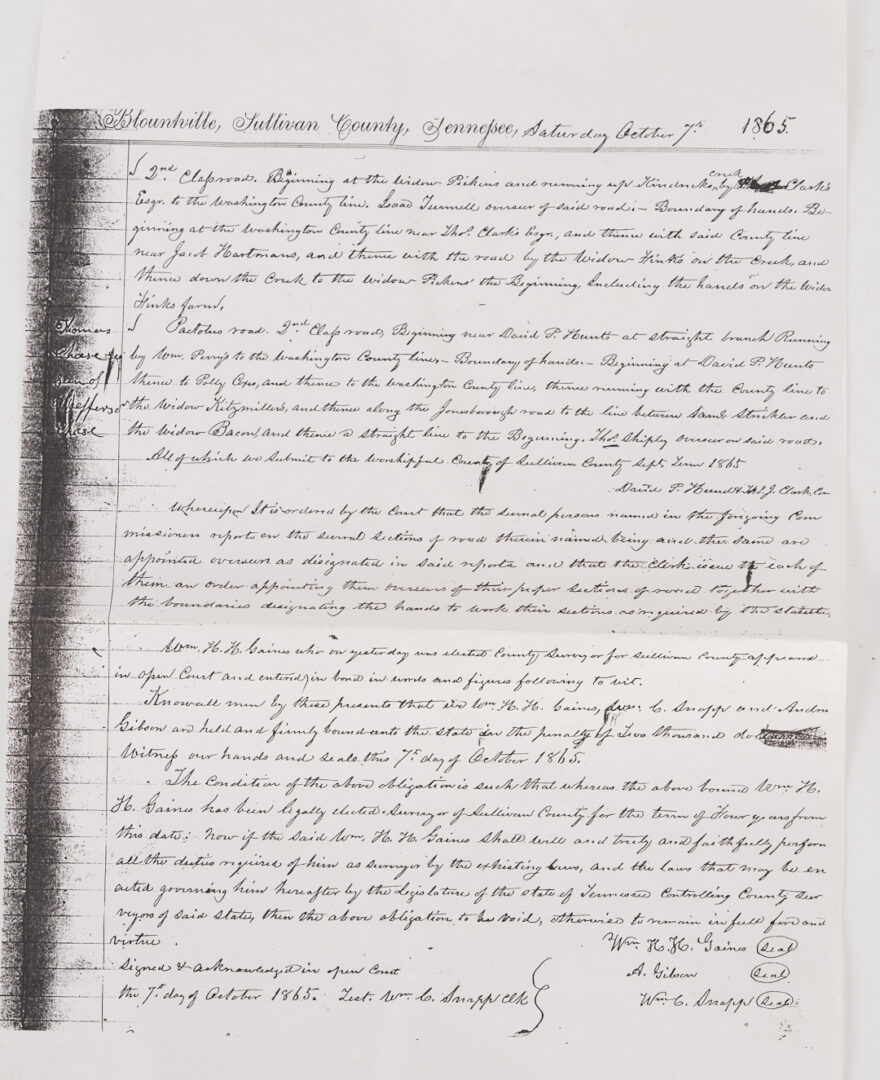 Blountville, Sullivan County, Tennessee, Saturday October 7th 1865.
2nd Class road. Beginning at the Widow Pickens and running up Kindricks creek by Clark's
Esqr. to the Washington County line. Isaac Tunnell overseer of said road; – Boundary of hands. Be-
ginning at the Washington County line near Thos. Clark's Esqr., and thence with said County line
near Jacob Hartmans, and thence with the road by the Widow Hinks on the Creek, and
thence down the Creek to the Widow Pickens the Beginning, Including the hands on the Widow
Hinks farm.
Pactolus road. 2nd Class road, Beginning near David P. Hunts at straight branch Running
by Wm. Perry's to the Washington County line, – Boundary of hands. – Beginning at David P. Hunts
thence to Polly Coxes, and thence to the Washington County line, thence running with the County line to
the Widow Kitzmillers, and thence along the Jonesborough road to the line between Saml. Strickler and
the Widow Bacon, and thence a straight line to the Beginning. Thos. Shiply overseer on said road.
Thomas
Chase
seen of
Jefferso
Chase
All of which we Submit to the Worshipful County of Sullivan County Sept. Term 1865
David P. Hund & Tho. J. Clark, Com
Whereupon It is ordered by the Court that the several persons named in the foregoing Com
missioners reports on the several sections of road therein named being and the same are
appointed overseers as disignated in said reports and that the Clerk issue to each of
them an order appointing them overseers of their proper sections of road together with
the boundaries designating the hands to work their sections as required by the statute.
Wm. H. H. Gaines who on yesterday was elected County Surveyor for Sullivan County appeared
in open Court and entered in bond in words and figures following to wit.
Know all men by these presents that we Wm. H. H. Gaines, Wm. C. Snapp and Andrew
Gibson are held and firmly bound unto the state in the penalty of Two thousand dollars
Witness our hands and seals this 7th day of October 1865.
The Condition of the above obligation is such that whereas the above bound Wm H.
H. Gaines has been legally elected Surveyor of Sullivan County for the term of Four years from
this date: Now if the said Wm. H. H. Gaines shall well and truly and faithfully perform
all the duties required of him as surveyor by the exhisting laws, and the laws that may be en
acted governing him hereafter by the Legislature of the state of Tennessee Controlling County Sur
veyors of said state, then the above obligation to be Void, otherwise to remain in full force and
virtue.
Wm. H. H. Gaines (Seal)
Signed & acknowledged in open Court
A. Gibson (Seal)
the 7th day of October 1865. Test. Wm. C. Snapp Clk
Wm C. Snapp (Seal)